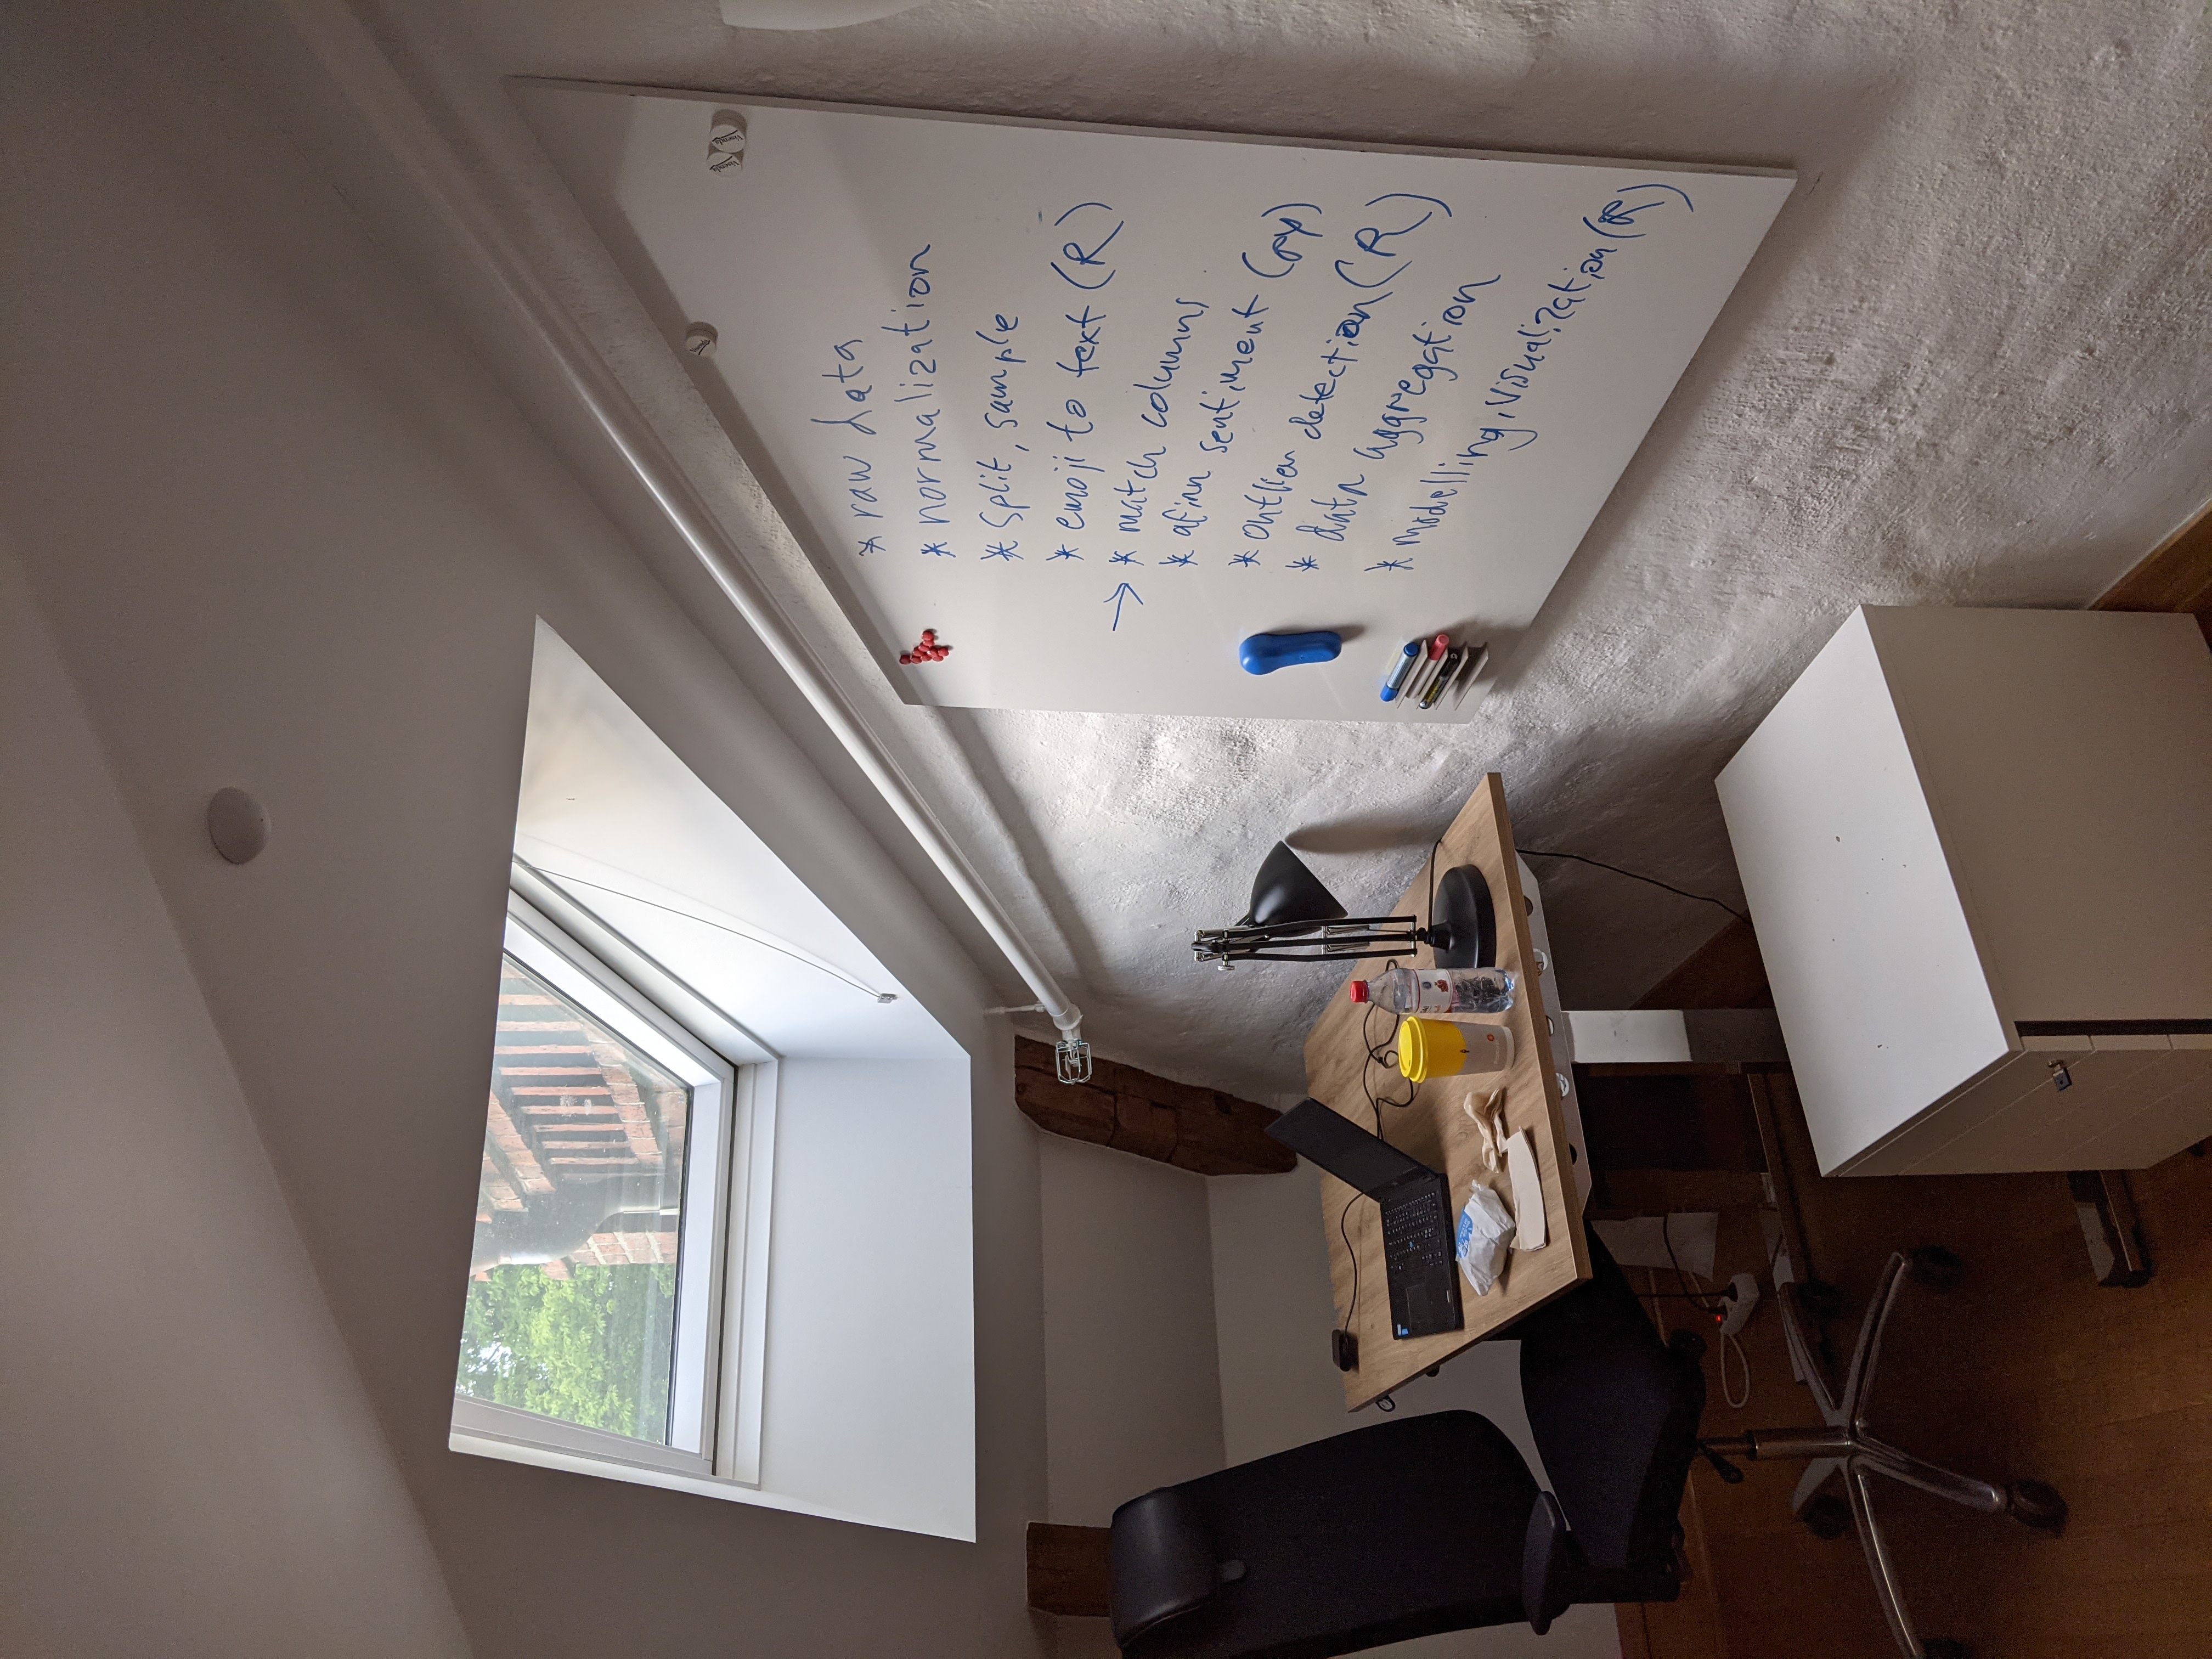 * raw data
* normalization
* split, sample
* emoji to text (R)
→ * match columns
* afinn sentiment (py)
* outlier detection (R)
* data aggregation
* modelling, visualization (R)